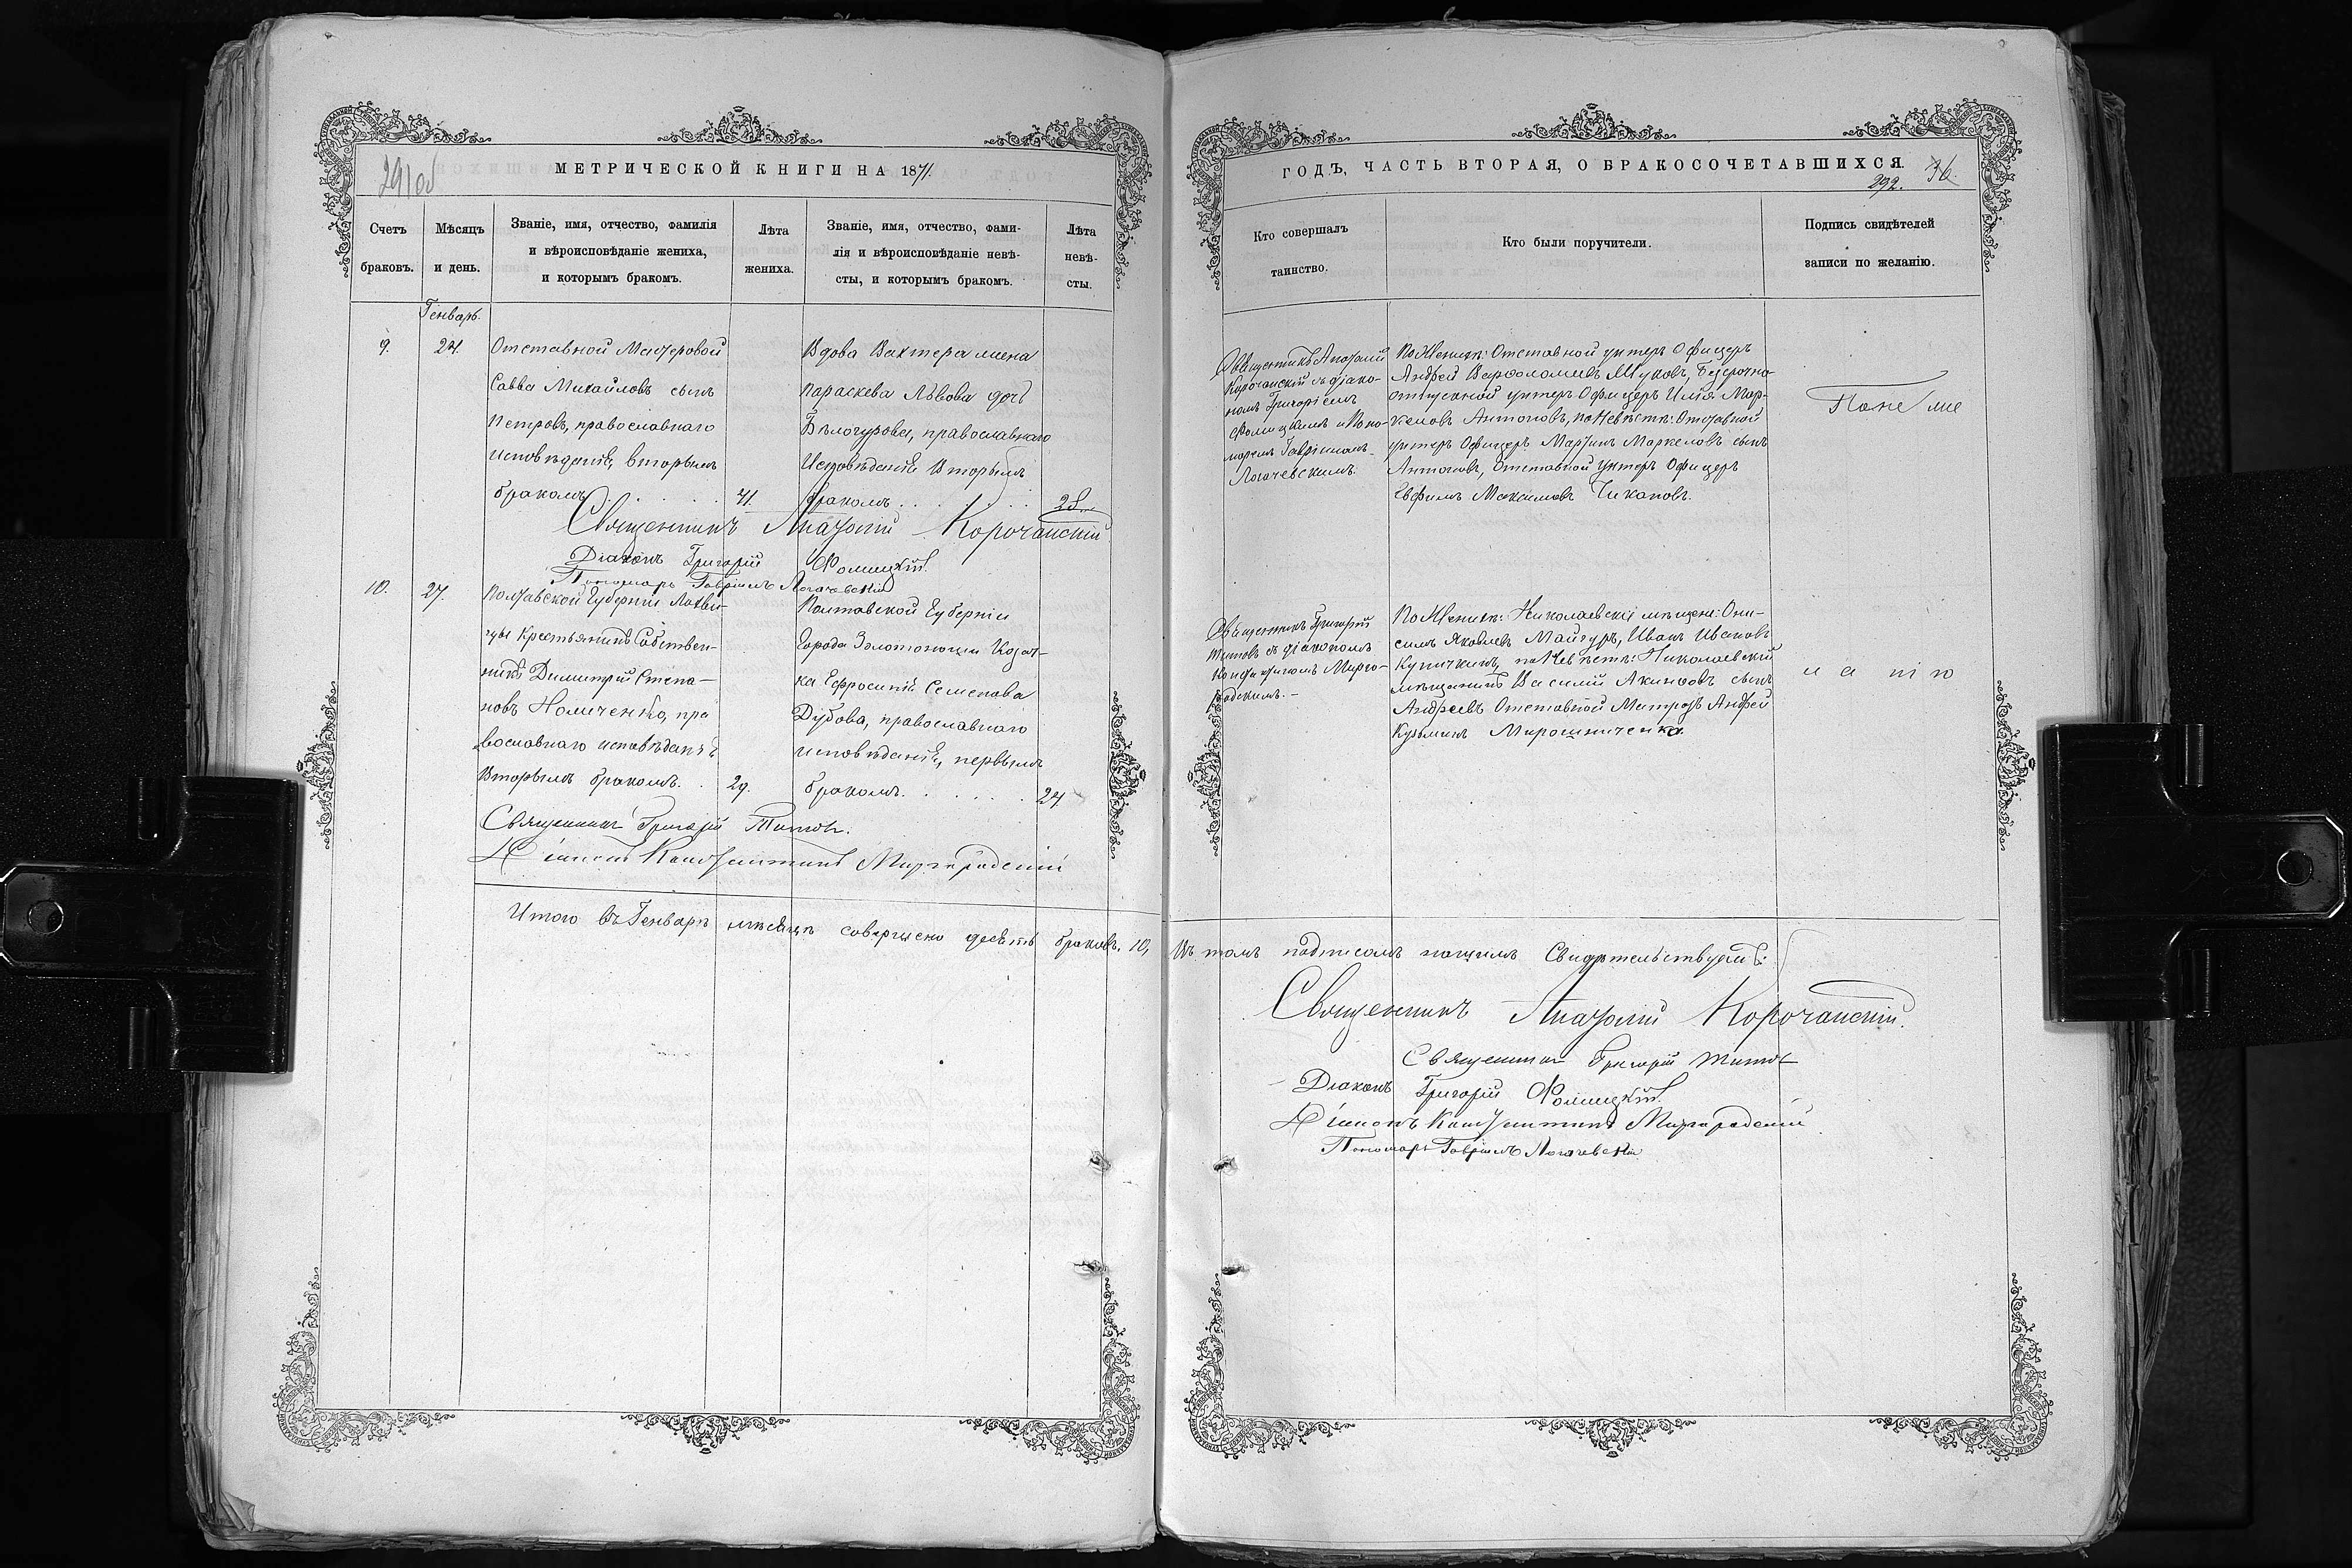 МЕТРИЧЕСКОЙ КНИГИ НА 1871.
Счетъ браковъ.
Мѣсяцъ и день.
Званіе, имя, отчество, фамилія
и вѣроисповѣданіе жениха,
и которымъ бракомъ.
Лѣта жениха.
Званіе, имя, отчество, фами-
лія и вѣроисповѣданіе невѣ-
сты, и которымъ бракомъ.
Лѣта невѣ-
сты.
Генварь.
9.
24.
Отставной Мастеровой
Савва Михайловъ сынъ
Петровъ, православнаго
исповѣданія, вторымъ
бракомъ
41.
Вдова Вахтера жена
Параскева Львова дочь
Бѣлогурова, православнаго
Исповѣданія Вторымъ
бракомъ
28.
Священникъ Анатолій Корочанскій
Діаконъ Григорій Фомицкій.
Пономарь Гавріилъ Логачевскій
10.
27.
Полтавской Губерніи
Крестьянинъ Собствен-
никъ Димитрій Степа-
новъ Номиченко, пра
вославнаго исповѣданія
Вторымъ бракомъ.
29.
Полтавской Губерніи
Города Золотоноши Козач-
ка Ефросинія Семенова
Дубова, православнаго
исповѣданія, первымъ
бракомъ.
24
Священникъ Григорій Титовъ.
Діаконъ Константинъ Миргородскій
Итого въ Генварѣ мѣсяцѣ совершено десять браковъ. 10,
ГОДЪ, ЧАСТЬ ВТОРАЯ, О БРАКОСОЧЕТАВШИХСЯ
292.
36.
Кто совершалъ
таинство.
Кто были поручители.
Подпись свидѣтелей
записи по желанію.
Священникъ Анатолій
Корочанскій съ діако-
номъ Григоріемъ
Фомицкимъ и Поно-
маремъ Гавріиломъ
Логачевскимъ.
По Женихѣ: Отставной унтеръ Офицеръ
Андрей Варѳоломеевъ Жуковъ, Безсрочно
отпускной унтеръ Офицеръ Илія Мар-
келовъ Антоновъ, по Невѣстѣ: Отставной
унтеръ Офицеръ Мартинъ Маркеловъ сынъ
Антоновъ, Отставной Унтеръ Офицеръ
Евфимъ Максимовъ Чикановъ.
По не же
Священникъ Григорій
Титовъ съ діакономъ
Константиномъ Мирго-
родскимъ.-
По Женихѣ: Николаевскіе мѣщане: Они-
симъ Яковлевъ Майгуръ, Иванъ Ивановъ
Купичкинъ, по Невѣстѣ: Николаевскій
мѣщанинъ Василій Акимовъ сынъ
Андреевъ Отставной Матрозъ Андрей
Кузьминъ Мирошниченко.
л а ні ю
Въ томъ подписомъ нашимъ Свидѣтельствуемъ:
Священникъ Анатолій Корочанскій.
Священникъ Григорій Титовъ
Діаконъ Григорій Фомицкій.
Діаконъ Константинъ Миргородскій
Пономарь Гавріилъ Логачевскій